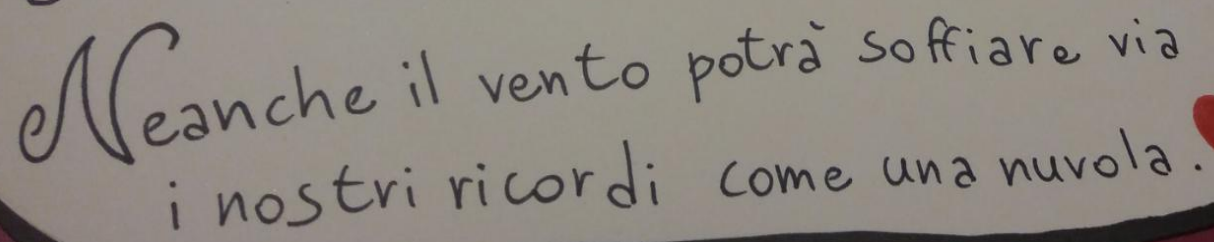 Neanche il vento potrà soffiare via
i nostri ricordi come una nuvola.